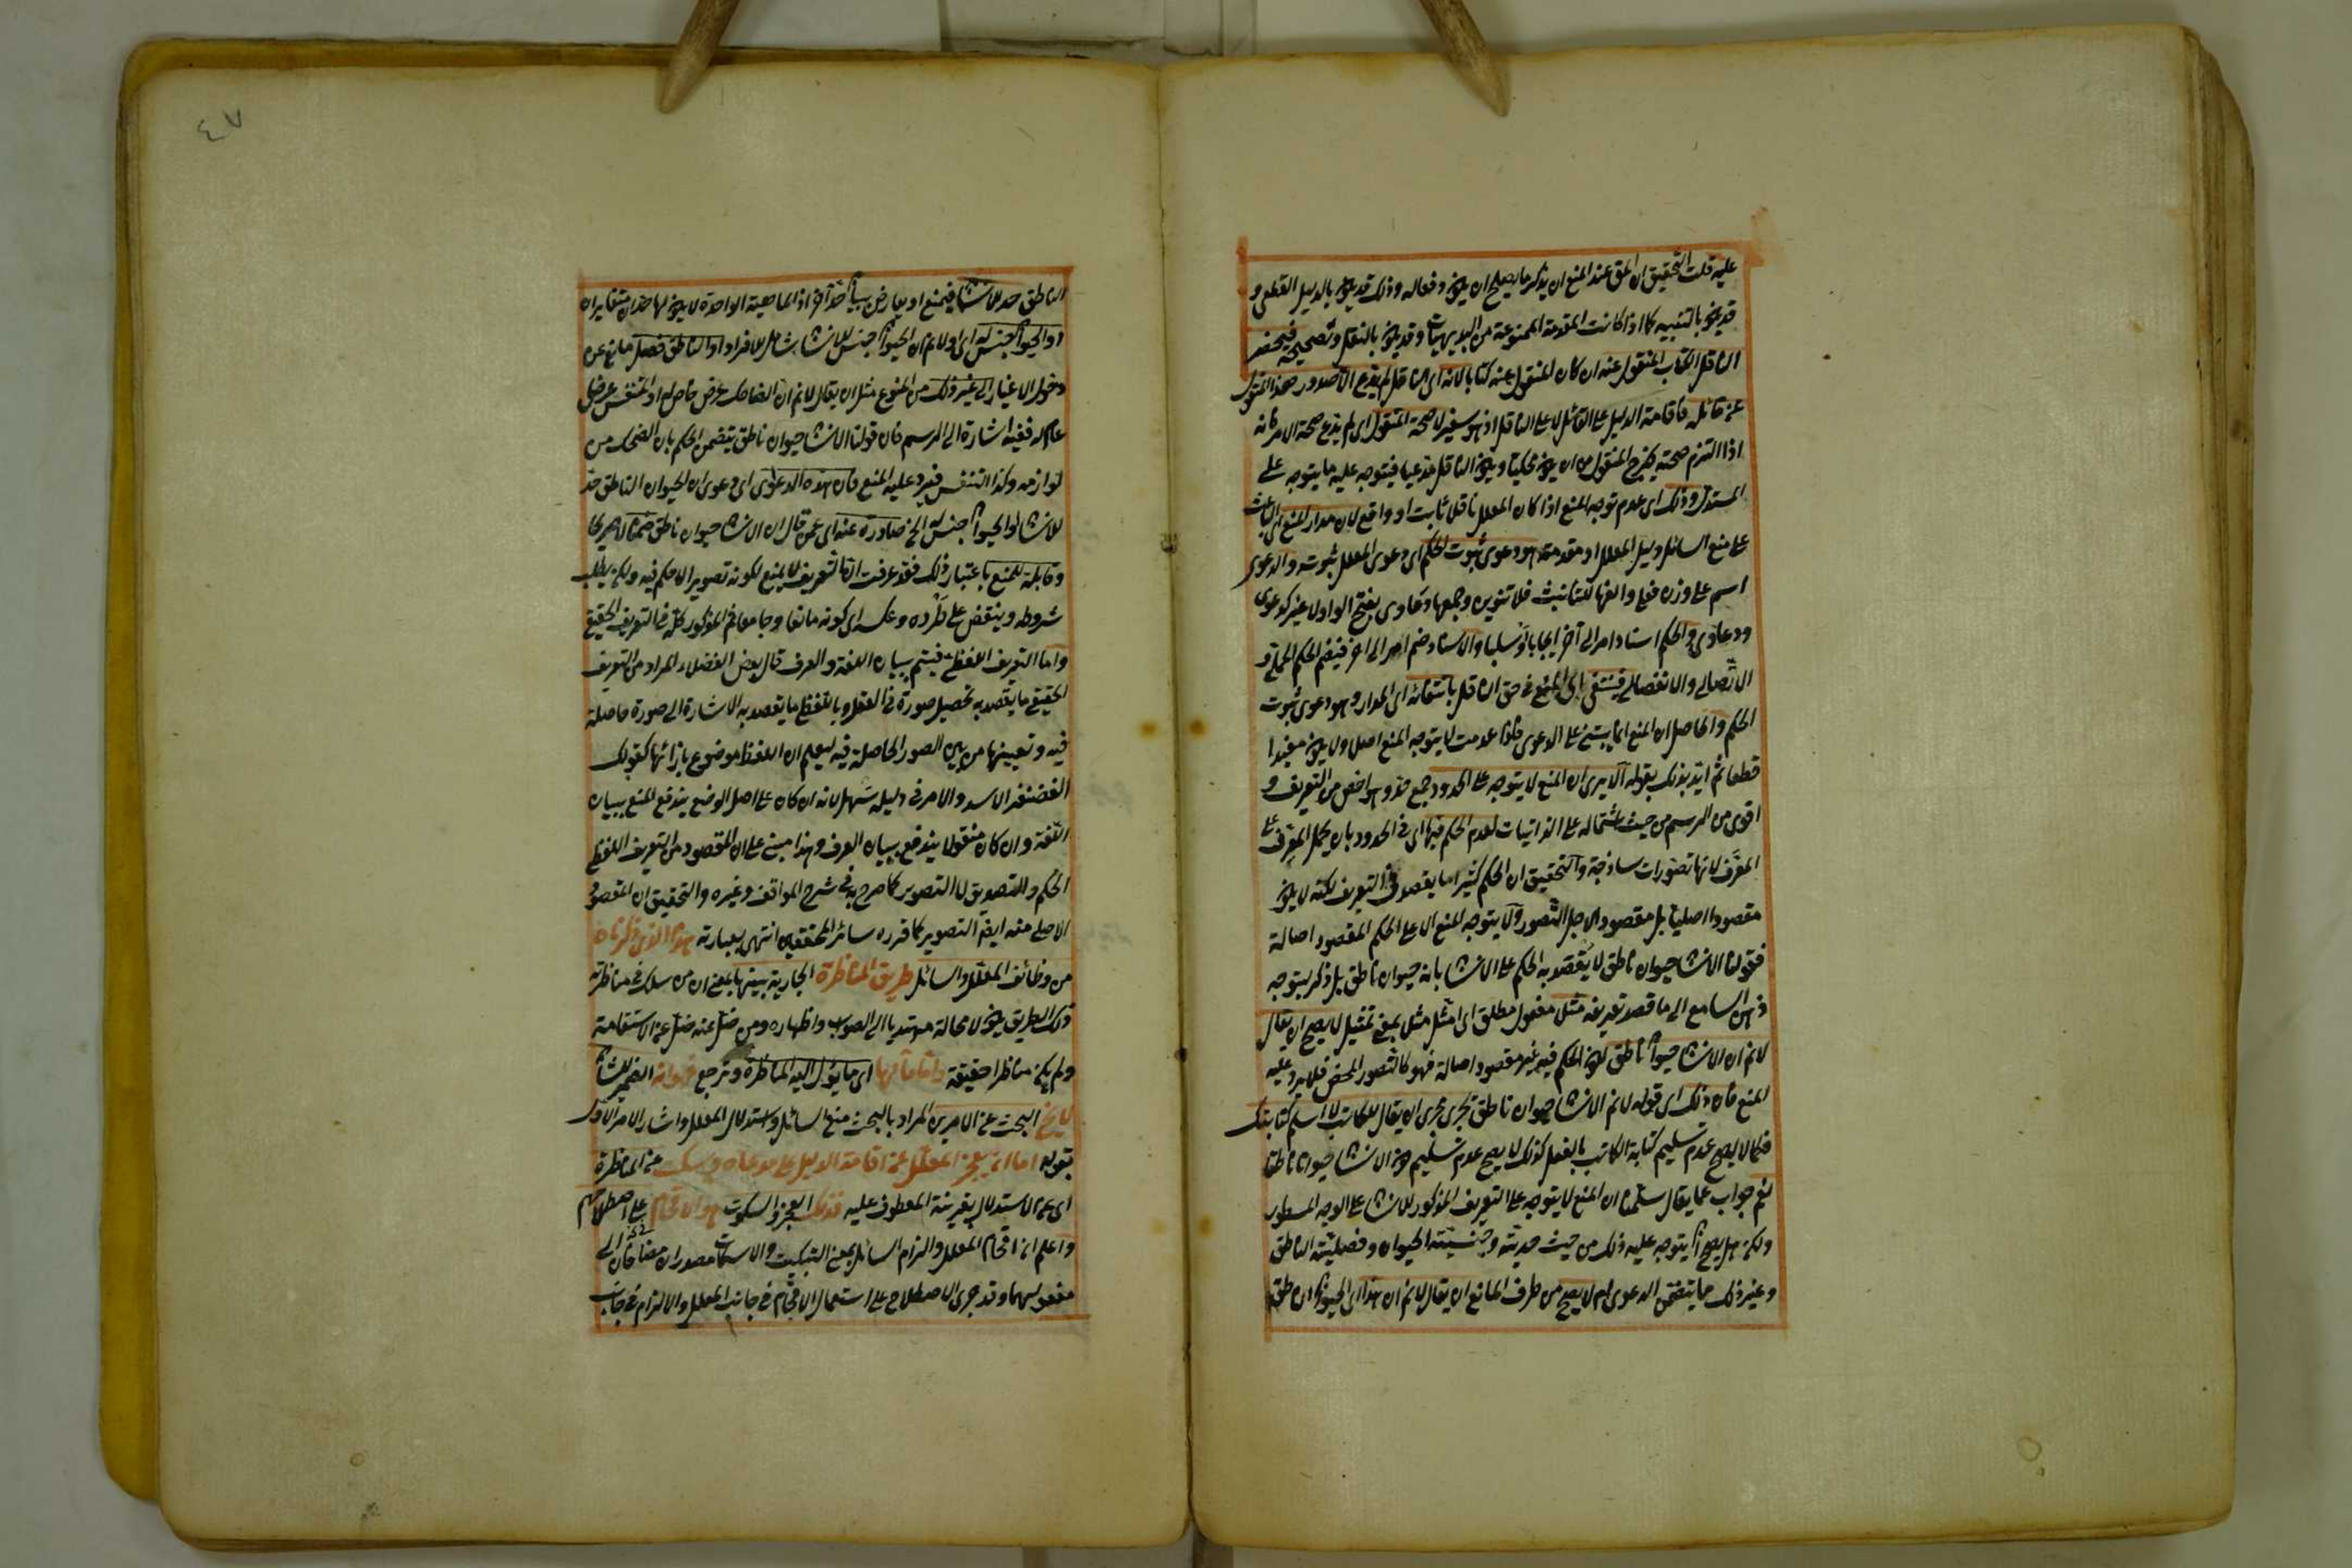 عليه قلت التحقيق ان الحق عند المنع ان يذكر ما يصلح ان يكون دفعا له وذلك قد يكون بالدليل القطعى و
قد يكون بالتنبيه كما اذا كانت المقدمة الممنوعة من البديهيات وقد يكون بالنقل وتصحيحه فيحضر
الناقل الكتاب المنقول عنه ان كان المنقول عنه كتابا لانه اى الناقل لم يدع الا صدور هذا القول
عن قائله فاقامة الدليل على القائل لا على الناقل اذ هو سفير لا صحة المنقول اى لم يدع صحة الامر فانه
اذا التزم صحته يخرج المنقول من ان يكون محكيا ويكون الناقل مدعيا فيتوجه عليه ما يتوجه على
المستدل وذلك اى عدم توجه المنع اذا كان المعلل ناقلا ثابت او واقع لان مدار المنع اى الباعث
على منع السائل دليل المعلل او مقدمته هو دعوى ثبوت الحكم اى دعوى المعلل ثبوته والدعوى
اسم على وزن فعلى والفها للتأنيث فلا تنوين وجمعها دعاوى بفتح الواو لا غير كدعوى
ودعاوى والحكم اسناد امر الى آخر ايجابا او سلبا والاسناد ضم امر الى اخر فيفهم الحكم الحملى و
الاتصالى والانفصالى فينتفى اى المنع فى حق الناقل بانتفائه اى المدار وهو دعوى ثبوت
الحكم والحاصل ان المنع انما يبتنى على الدعوى فاذا عدمت لا يتوجه المنع اصلا ولا يكون مفيدا
قطعا ثم ايد ذلك بقوله الا يرى ان المنع لا يتوجه على الحدود جمع حد وهو اخص من التعريف و
اقوى من الرسم من حيث اشتماله على الذاتيات لعدم الحكم فيها اى فى الحدود بان يحمل المعرف على
المعرف لانها تصورات ساذجة والتحقيق ان الحكم كثيرا ما يقصد فى التعريف لكنه لا يكون
مقصودا اصليا بل مقصود لاجل التصور ولا يتوجه المنع الا على الحكم المقصود اصالة
فقولنا الانسان حيوان ناطق لا يقصد به الحكم على الانسان بانه حيوان ناطق بل ذكر ليتوجه
ذهن السامع الى ما قصد تعريفه مثل مفعول مطلق اى امثل مثل بمعنى تمثيل لا يصح ان يقال
لا نم ان الانسان حيوان ناطق لكون الحكم فيه غير مقصود اصالة فهو كالتصور المحض فلا يرد عليه
المنع فان ذلك اى قوله لا نم الانسان حيوان ناطق يجرى مجرى ان يقال للكاتب لا اسلم كتابتك
فكما لا يصح عدم تسليم كتابة الكاتب بالفعل كذلك لا يصح عدم تسليم كون الانسان حيوانا ناطقا
نعم جواب عما يقال سلمنا ان المنع لا يتوجه على التعريف المذكور للانسان على الوجه المسطور
ولكن هل يصح ان يتوجه عليه ذلك من حيث حديته وجنسية الحيوان وفصلية الناطق
وغير ذلك مما يتضمن الدعوى ام لا يصح من طرف المانع ان يقال لا نم ان هذا اى الحيوان الناطق
الناطق حد للانسان فيمنع او يعارض ببيان حد آخر اذ الماهية الواحدة لا يكون لها حدان متغايران
او الحيوان جنس له اى او لا نم ان الحيوان جنس للانسان شامل للافراد او الناطق فصل مانع عن
دخول الاغيار الى غير ذلك من المنوع مثل ان يقال لا نم ان الضاحك عرض خاص له او المتنفس عرض
عام له ففيه اشارة الى الرسم فان قولنا الانسان حيوان ناطق يتضمن الحكم بان الضحك من
لوازمه وكذا التنفس فيرد عليه المنع فان هذه الدعاوى اى دعوى ان الحيوان الناطق حد
للانسان او الحيوان جنس الخ صادرة عنه اى عمن قال ان الانسان حيوان ناطق ضمنا لا صريحا
وقابلة للمنع باعتبار ذلك فقد عرفت ان التعريف لا يمنع لكونه تصويرا لا حكم فيه ولكن يطلب
شروطه وينقض على طرده وعكسه اى كونه مانعا وجامعا ثم المذكور كله فى التعريف الحقيقى
واما التعريف اللفظى فيتم ببيان اللغة والعرف قال بعض الفضلاء المراد من التعريف
الحقيقى ما يقصد به تحصيل صورة فى العقل وباللفظى ما يقصد به الاشارة الى صورة حاصلة
فيه وتعيينها من بين الصور الحاصلة فيه ليعلم ان اللفظ موضوع بازائها كقولك
الغضنفر الاسد والامر فى دليله سهل لانه ان كان على اصل الوضع يندفع المنع ببيان
اللغة وان كان منقولا يندفع ببيان العرف وهذا مبنى على ان المقصود من التعريف اللفظى
الحكم والتصديق لا التصوير كما صرح به فى شرح المواقف وغيره والتحقيق ان المقصود
الاصلى منه ايضا التصوير كما قرره سائر المحققين انتهى بعبارته هذا الذى ذكرناه
من وظائف المعلل والسائل طريق المناظرة الجارية بينهما بمعنى ان من سلك فى مناظرته
ذلك الطريق يكون لا محالة مهتديا الى الصواب واظهاره ومن ضل عنه ضل عن الاستقامة
ولم يكن مناظرا حقيقة واما مآلها اى ما يؤل اليه المناظرة وترجع فهو انه الضمير للشان
لا يخ البحث عن الامرين المراد بالبحث منع السائل واستدلال المعلل واشار الى الامر الاول
بقوله اما ان يعجز المعلل عن اقامة الدليل على مدعاه ويسكت عن المناظرة
اى عن الاستدلال بقرينة المعطوف عليه فذلك العجز والسكوت هو الافحام على اصطلاحهم
واعلم ان افحام المعلل والزام السائل بمعنى التبكيت والاسكات مصدران مضافان الى
مفعوليهما وقد جرى الاصطلاح على استعمال الافحام فى جانب المعلل والالزام فى جانب
٤٧